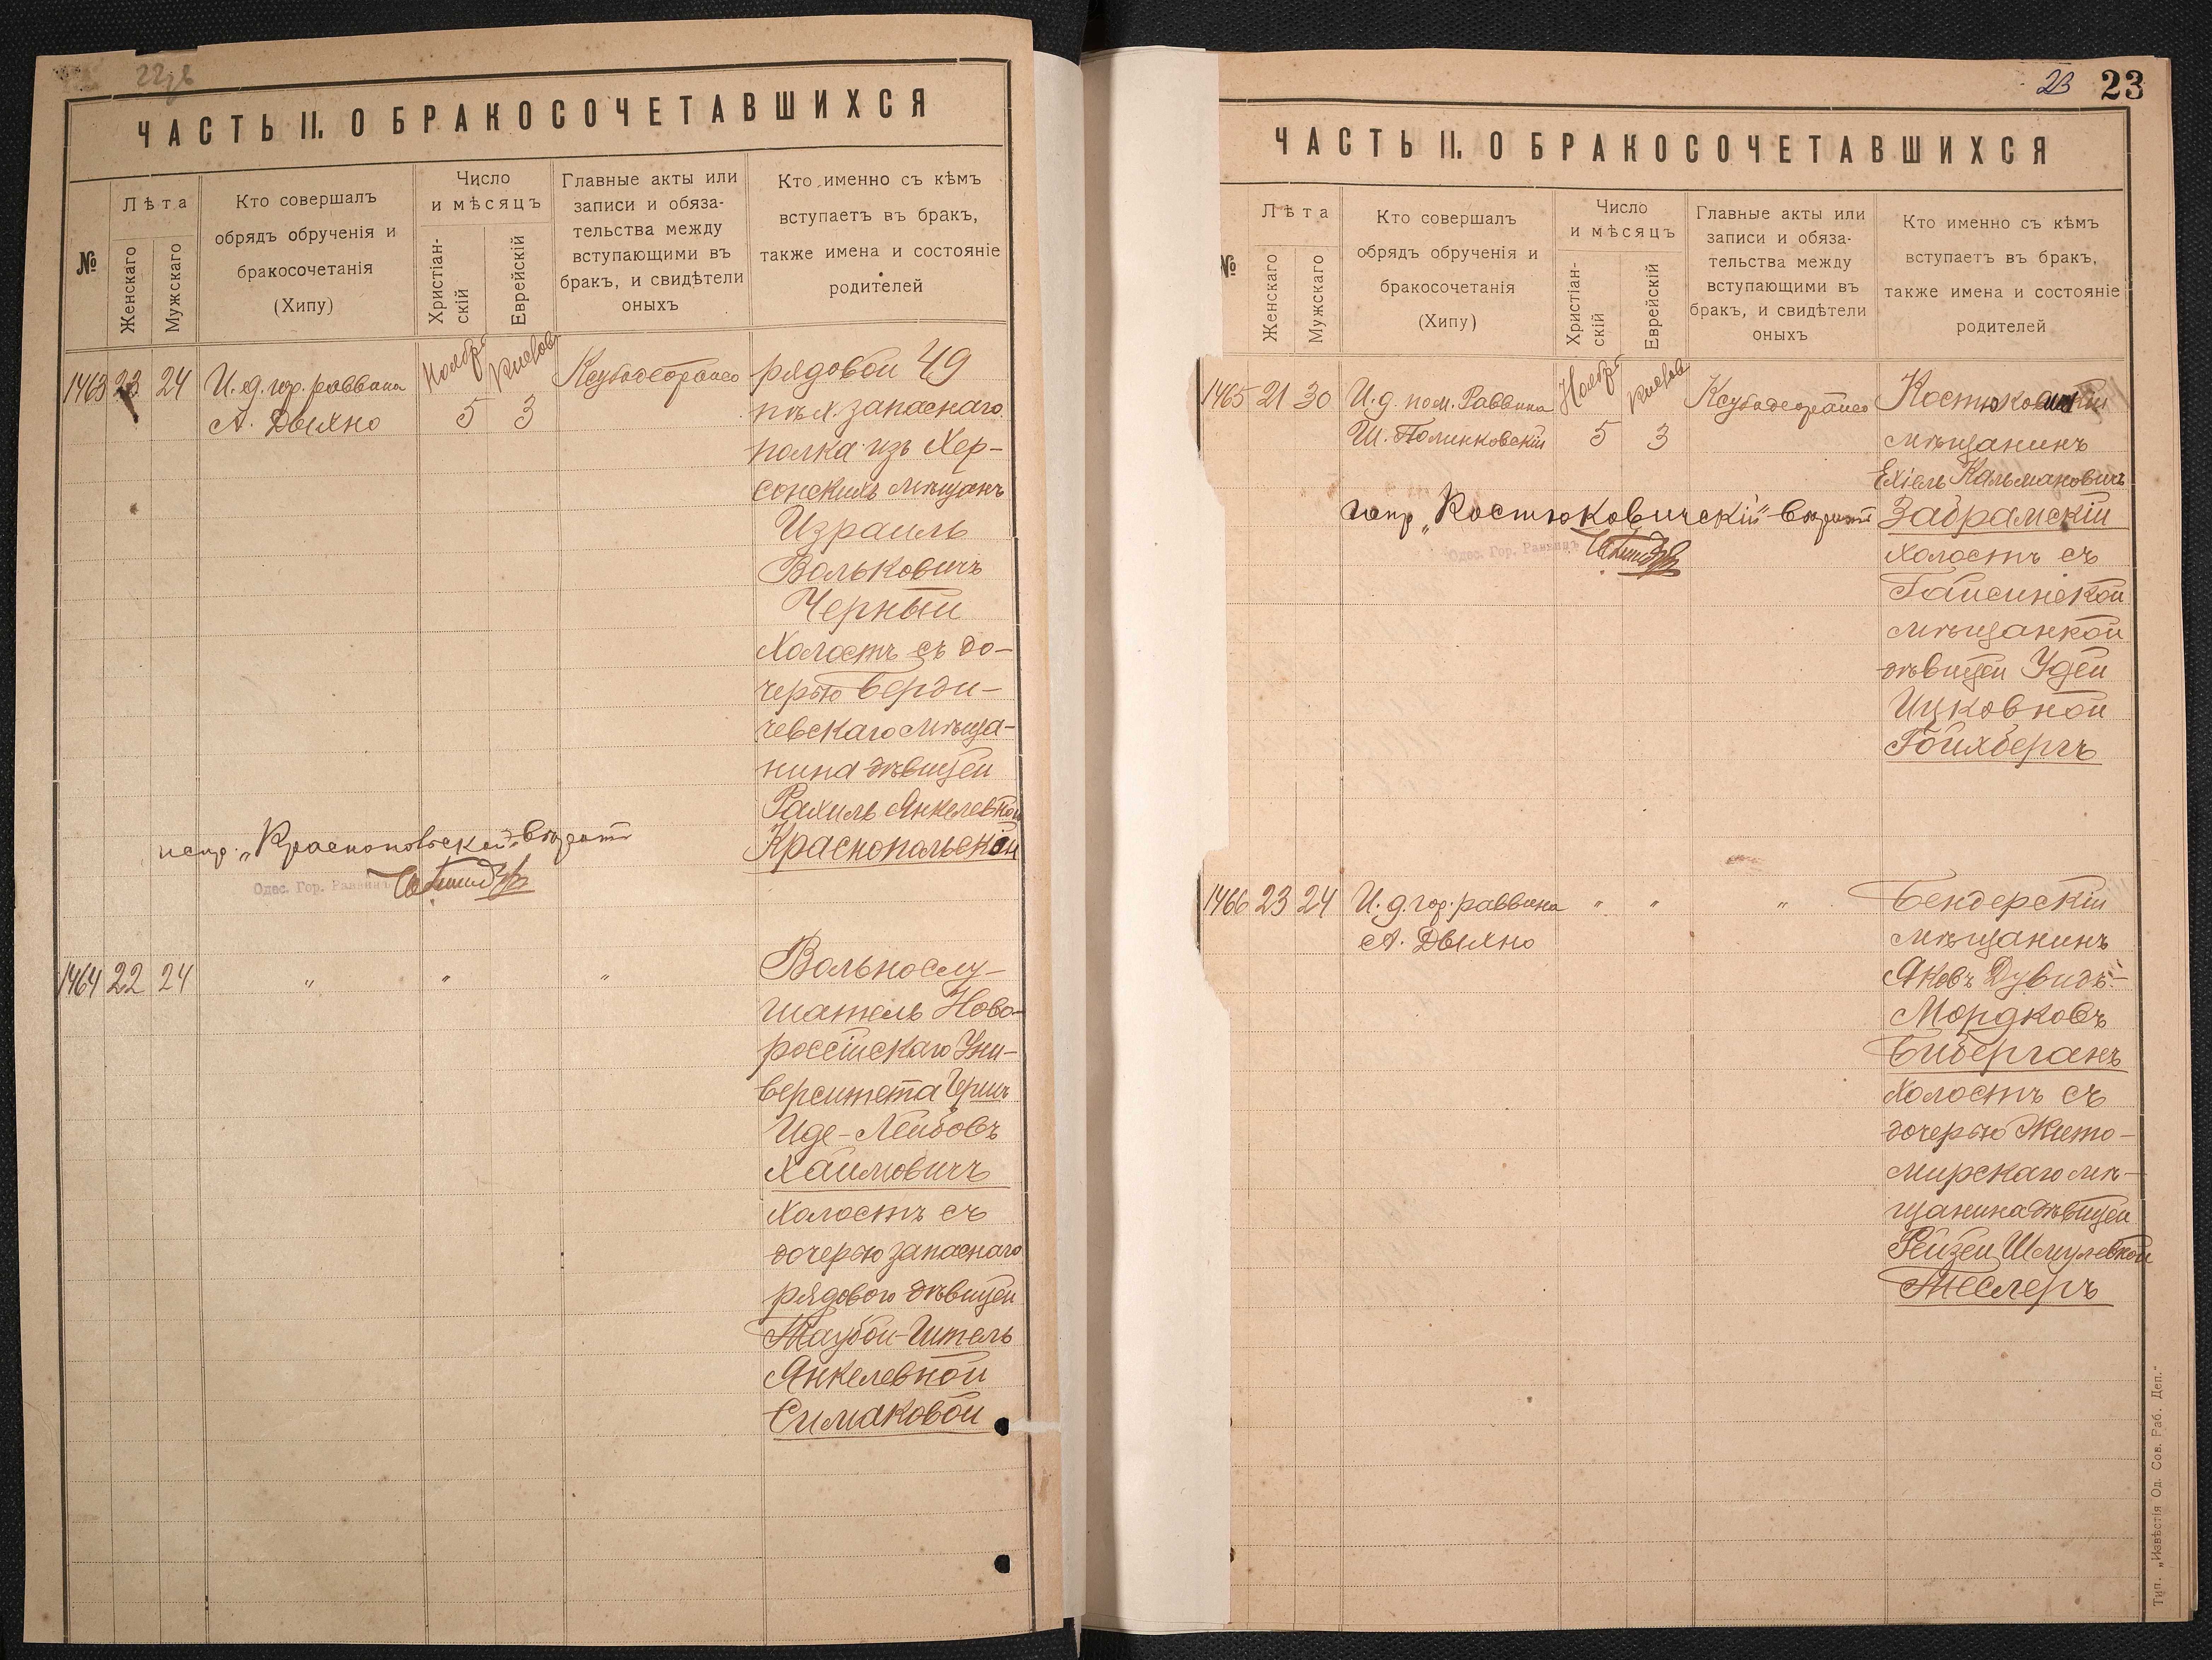 22 об
ЧАСТЬ II. О БРАКОСОЧЕТАВШИХСЯ
№
Лѣта
Женскаго
Мужскаго
Кто совершалъ
обрядъ обрученія и
бракосочетанія
(Хипу)
Число
и мѣсяцъ
Христіан-
скій
Еврейскій
Главные акты или
записи и обяза-
тельства между
вступающими въ
бракъ, и свидѣтели
оныхъ
Кто именно съ кѣмъ
вступаетъ въ бракъ,
также имена и состояніе
родителей
1463 23 24
И. д. гор. раввина
А. Двыхно
Ноябр
Кислев
5 3
рядовой 49
пѣх. запаснаго
полка изъ Хер-
сонскихъ мѣщанъ
Израиль
Вольковичъ
Черный
Холостъ съ до-
черью Берди-
чевскаго мѣща-
нина дѣвицей
Рахиль Янкелевной
Краснопольской
испр. „Краснопольской" вѣрить
Одес. Гор. Раввинъ
1464 22 24
" " "
Вольнослу-
шатель Ново-
россійскаго Уни-
верситета Герш
Иде-Лейбовъ
Хаимовичъ
Холостъ съ
дочерью запаснаго
рядового дѣвицей
Таубой-Итель
Янкелевной
Симаковой
23 23
ЧАСТЬ II. О БРАКОСОЧЕТАВШИХСЯ
№
Лѣта
Женскаго
Мужскаго
Кто совершалъ
обрядъ обрученія и
бракосочетанія
(Хипу)
Число
и мѣсяцъ
Христіан-
скій
Еврейскій
Главные акты или
записи и обяза-
тельства между
вступающими въ
бракъ, и свидѣтели
оныхъ
Кто именно съ кѣмъ
вступаетъ въ бракъ,
также имена и состояніе
родителей
1465 21 30
И. д. пом. Раввина
Ш. Полинковскій
Ноябр
Кислев
5 3
мѣщанинъ
Ехіель Кальмановичъ
Забрамскій
холостъ съ
Гайсинской
мѣщанкой
дѣвицей Удей
Ицковной
Гойхбергъ
испр. „Костюковичскій" вѣрить
Одес. Гор. Раввинъ
1466 23 24
И. д. гор. раввина
А. Двыхно
" " "
Бендерскій
мѣщанинъ
Яковъ Дувидъ-
Мордковъ
Биберганъ
Холостъ съ
дочерью Жито-
мирскаго мѣ-
щанина дѣвицей
Рейзей Шмулевной
Теслеръ
Тип. „Извѣстія Од. Сов. Раб. Деп."